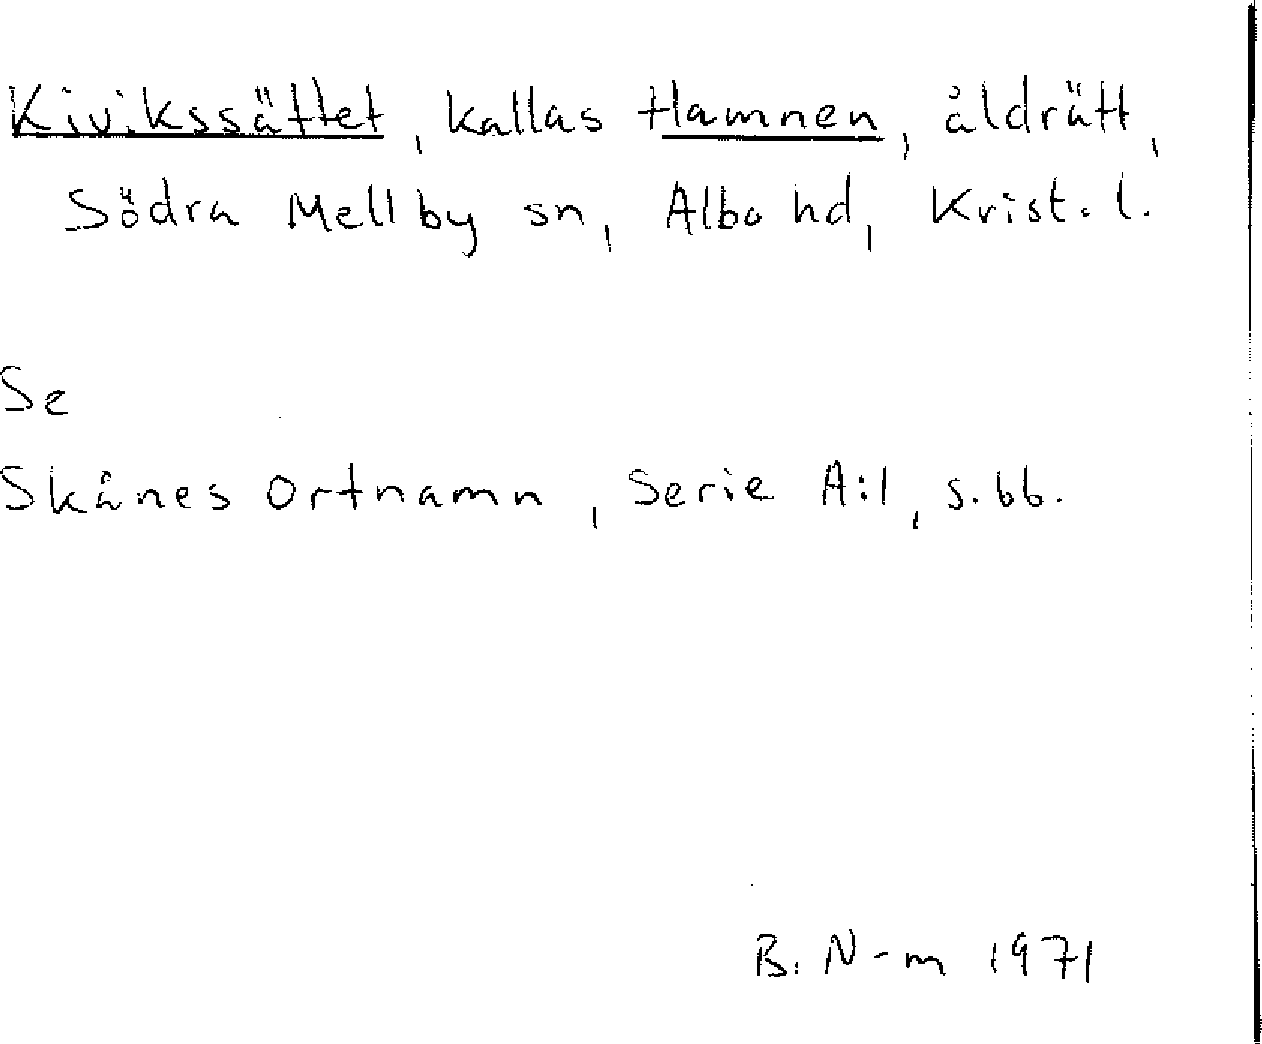 Kivikssättet, kallas Hamnen, åldrätt,
Södra Mellby sn, Albo hd, Krist. l.
Se
Skånes Ortnamn, Serie A:1, s. 66.
B. N-m 1971